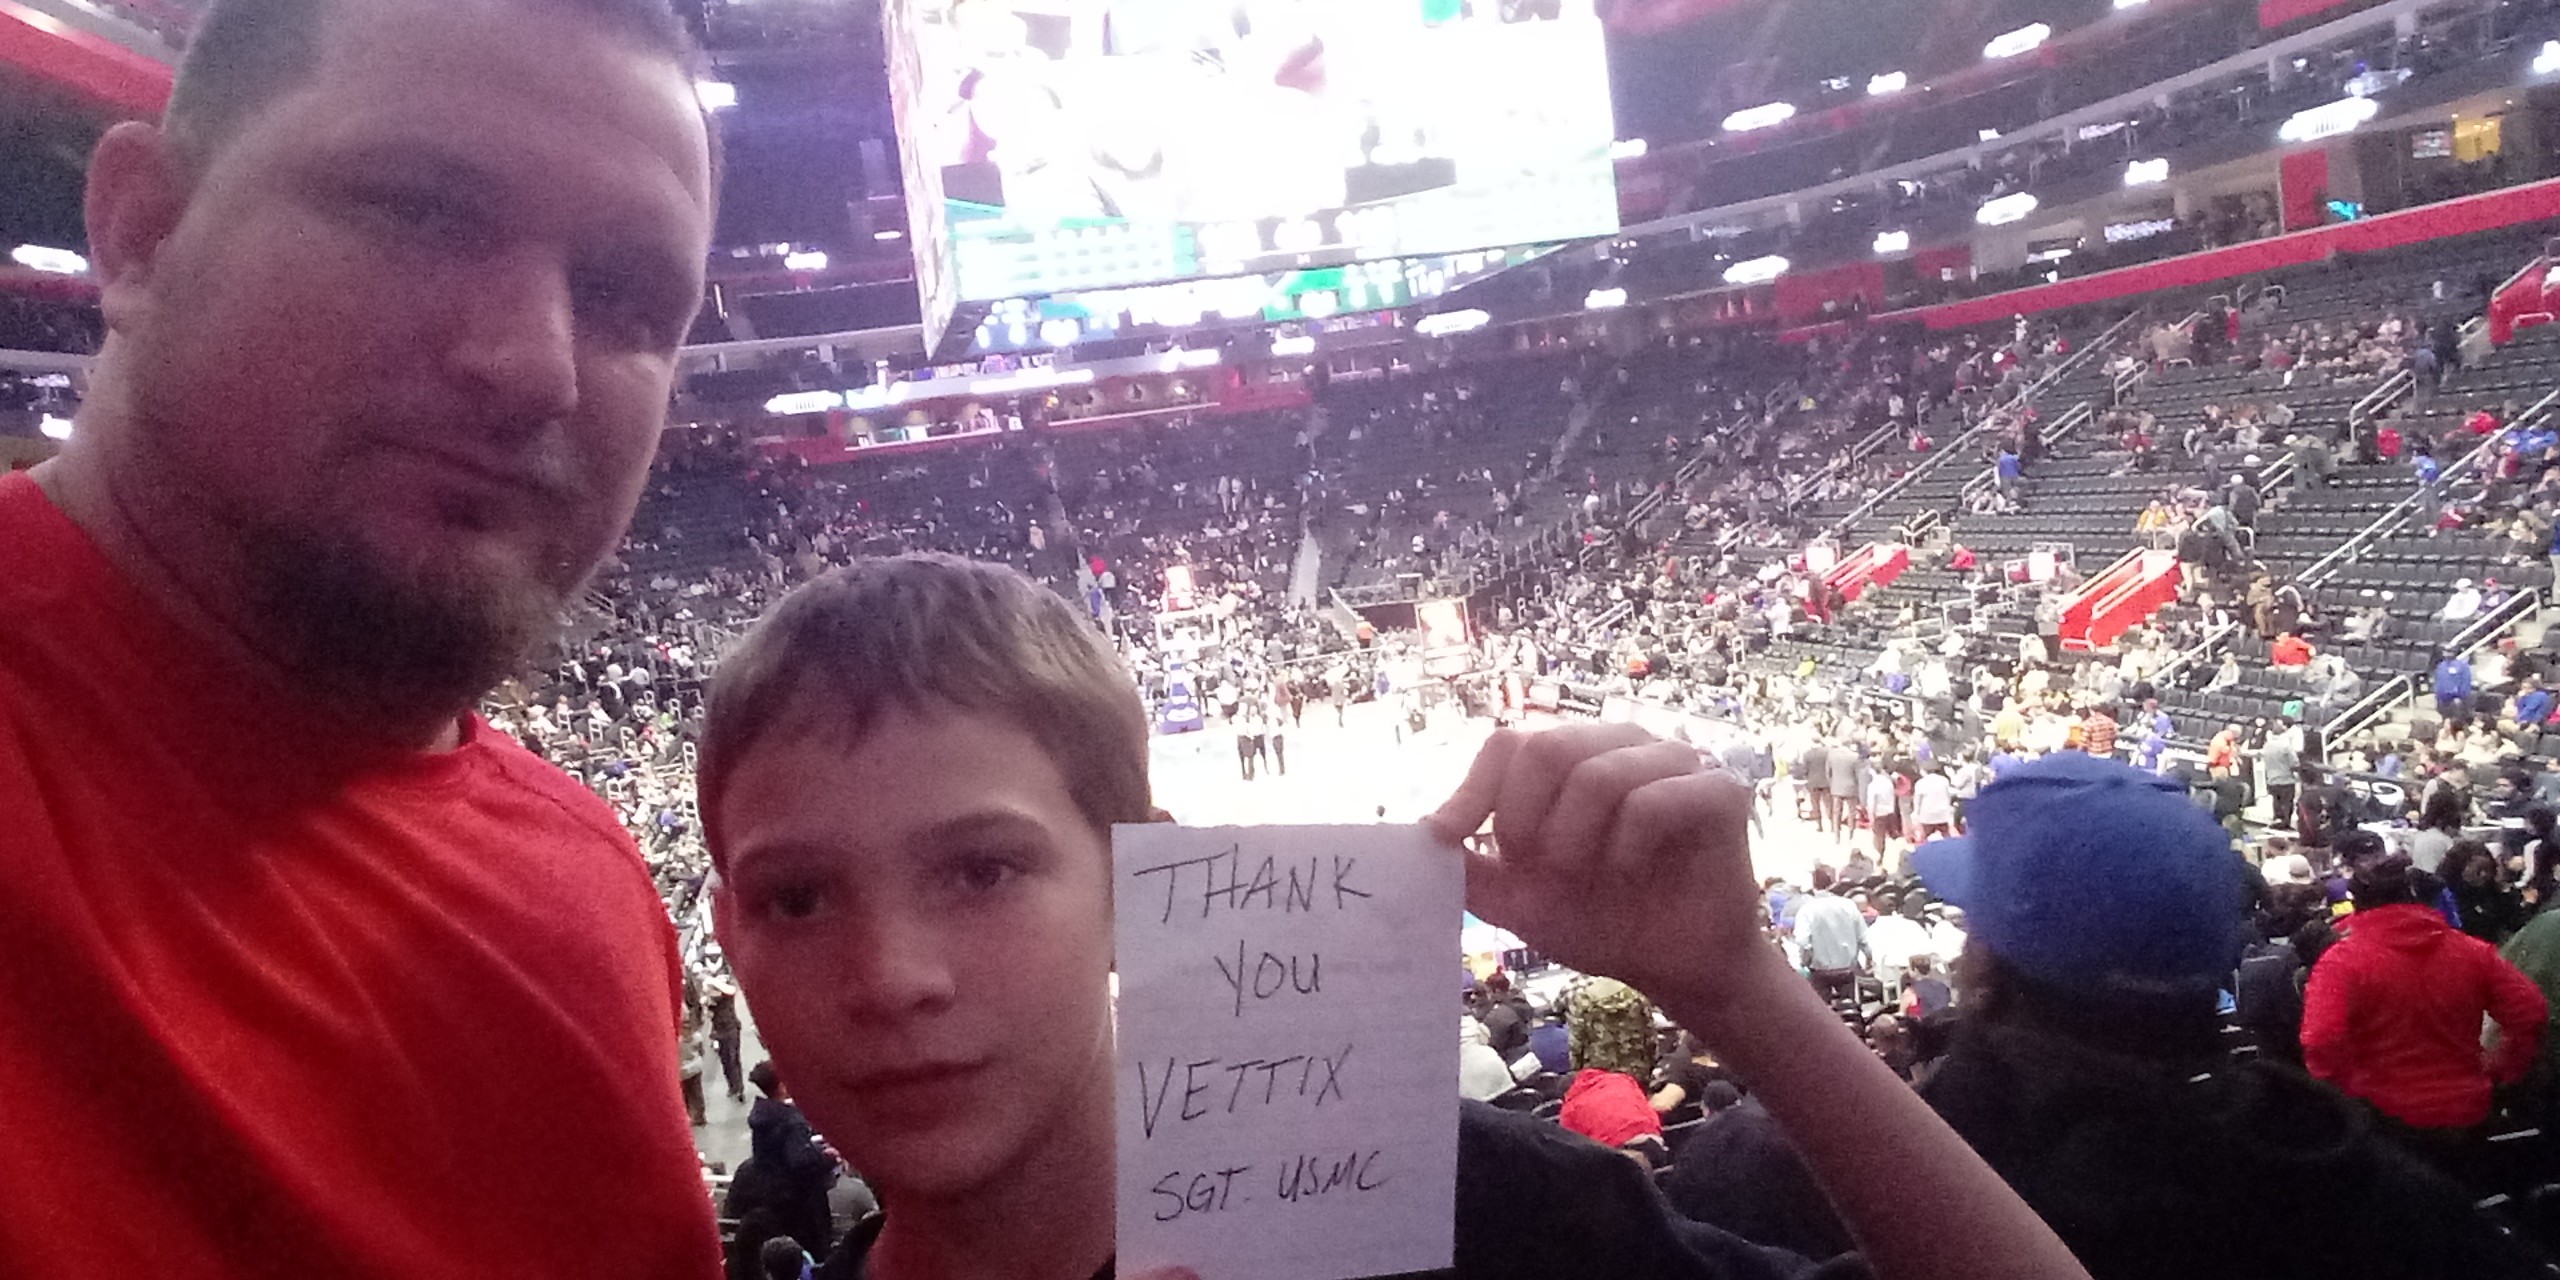 THANK
YOU
VETTIX
SGT. USMC